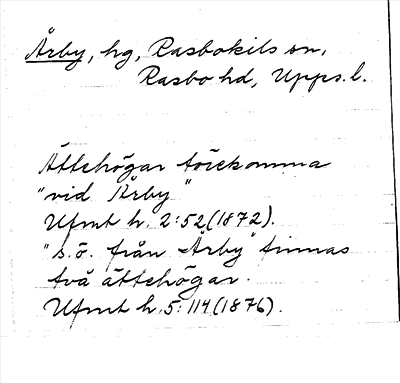 Årby, hg, Rasbokils sn,
Rasbo hd, Upps. l.
Ättehögar förekomma
"vid Årby"
Ufmt h. 2:52 (1872).
"s.ö. från Årby finnas
två ättehögar.
Ufmt h. 5:114 (1876).